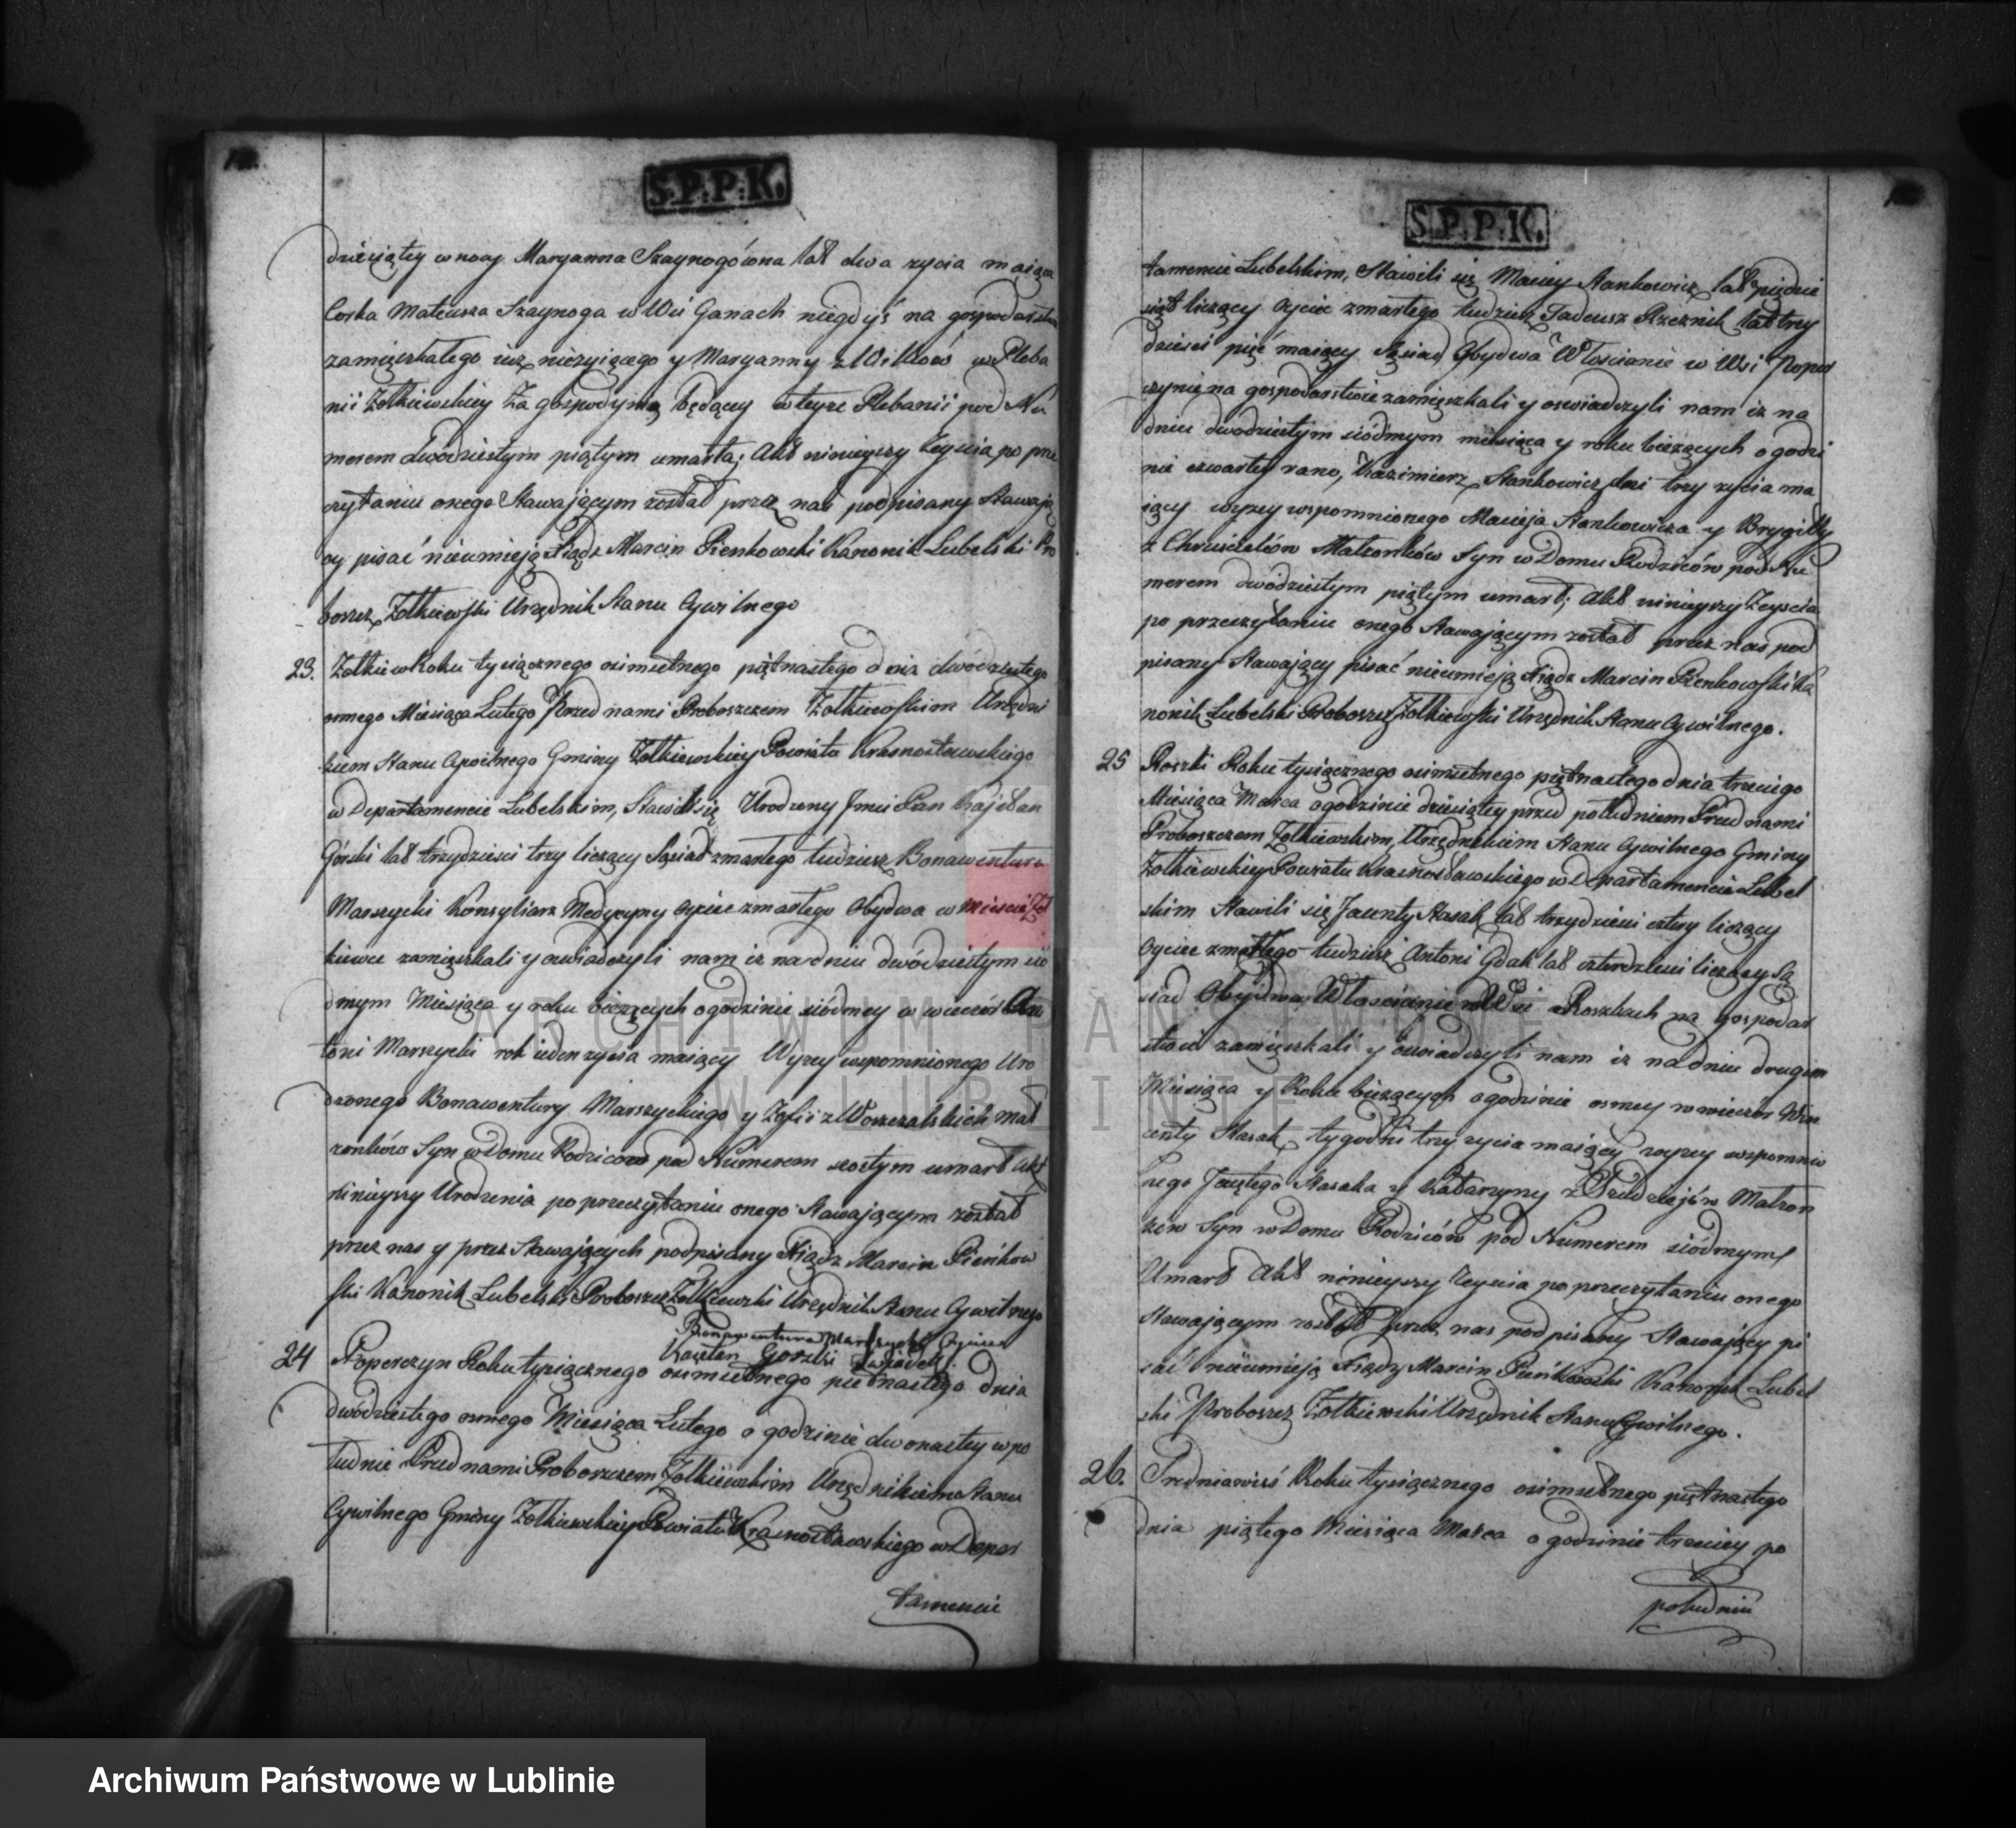 S.P.P.K.
dziesiątey w nocy Maryanna Szaynogówna lat dwa zycia maiąca
Corka Mateusza Szaynoga w Wsi Ganach niegdyś na gospodarstwie
zamięszkałego iuz nieżyiącego y Maryanny z Wilków w Pleba
nii Żołkiewskiey Za gospodynią będącey w teyze Plebanii pod Nu
merem dwódziestym piątym umarła; Akt ninieyszy Zeyscia po prze
czytaniu onego Stawającym został przez nas podpisany Stawają
cy pisać nieumieją Xiądz Marcin Pienkowski Kanonik Lubelski Pro
boszcz Żołkiewski Urzędnik Stanu Cywilnego
23. Żołkiew Roku tysiącznego osimsetnego piętnastego dnia dwódziestego
osmego Miesiąca Lutego Przed nami Proboszczem Żołkiewskim Urzędni
kiem Stanu Cywilnego Gminy Żołkiewskiey Powiatu Krasnostawskiego
w Departamencie Lubelskim, Stawili się Urodzony Jmci Pan Kajetan
Górski lat trzydziesci trzy liczący Sąsiad zmarłego tudziesz Bonawentura
Marszycki Konsyliarz Medycyny Oyciec zmarłego Obydwa w Miescie Żoł
kiewce zamięszkali y oswiadczyli nam iz na dniu dwódziestym sió
dmym Miesiąca y roku biezących o godzinie siódmey w wieczór An
toni Marszycki rok ieden zycia maiący Wyzey wspomnionego Uro
dzonego Bonawentury Marszyckiego y Zofii z Worszalskich Mał
zonków Syn w Domu Rodziców pod Numerem szostym umarł Akt
ninieyszy Urodzenia po przeczytaniu onego Stawającym został
przez nas y przez Stawających podpisany Xiądz Marcin Pieńkow
ski Kanonik Lubelski Proboszcz Żołkiewski Urzędnik Stanu Cywilnego
Bonawentura Marszycki Oyciec
Kajetan Gorski Swiadek.
24 Poperczyn Roku tysiącznego osimsetnego pietnastego dnia
dwódziestego osmego Miesiąca Lutego o godzinie dwonastey w po
łudnie Przed nami Proboszczem Żołkiewskim Urzędnikiem Stanu
Cywilnego Gminy Żołkiewskiey Powiatu Krasnostawskiego w Depar
tamencie
S.P.P.K.
tamencie Lubelskim, Stawili się Maciey Stankowicz lat pięcdzie
siąt liczący Oyciec zmarłego tudziesz Tadeusz Rzeznik lat trzy
dziesci pięc maiący Sąsiad Obydwa Włoscianie w Wsi Poper
czynie na gospodarstwie zamięszkali y oswiadczyli nam iz na
dniu dwodziestym siódmym miesiąca y roku biezących o godzi
nie czwartey rano, Kazimierz Stankowicz dni trzy zycia ma
iący wyzey wspomnionego Macieja Stankowicza y Brygitty
z Chruscielów Małzonków Syn w Domu Rodziców pod Nu
merem dwódziestym piątym umarł; Akt ninieyszy Zeyscia
po przeczytaniu onego Stawającym został przez nas pod
pisany Stawający pisać nieumieją Xiądz Marcin Pienkowski Ka
nonik Lubelski Proboszcz Żołkiewski Urzędnik Stanu Cywilnego.
25 Roszki Roku tysiącznego osimsetnego piętnastego dnia trzeciego
Miesiąca Marca o godzinie dziesiątey przed południem Przed nami
Proboszczem Żołkiewskim, Urzędnikiem Stanu Cywilnego Gminy
Żołkiewskiey Powiatu Krasnostawskiego w Departamencie Lubel
skim Stawili się Jacenty Stasak lat trzydziesci cztery liczący
Oyciec zmarłego tudziesz Antoni Gdak lat czterdziesci liczący Są
siad Obydwa Włoscianie w Wsi Roszkach na gospodar
stwie zamięszkali y oswiadczyli nam iz na dniu drugim
Miesiąca y Roku biezących o godzinie osmey w wieczór Win
centy Stasak tygodni trzy zycia maiący wyzey wspomnio
nego Jacętego Stasaka y Katarzyny z Małzon
ków Syn w Domu Rodziców pod Numerem siódmym
Umarł Akt ninieyszy Zeyscia po przeczytaniu onego
Stawającym został przez nas podpisany Stawający pi
sać nieumieją Xiądz Marcin Pieńkowski Kanonik Lubel
ski Proboszcz Żołkiewski Urzędnik Stanu Cywilnego.
26. Sredniawieś Roku tysiącznego osimsetnego piętnastego
dnia piątego Miesiąca Marca o godzinie trzeciey po
południu
ARCHIWUM PAŃSTWOWE
W LUBLINIE
Archiwum Państwowe w Lublinie